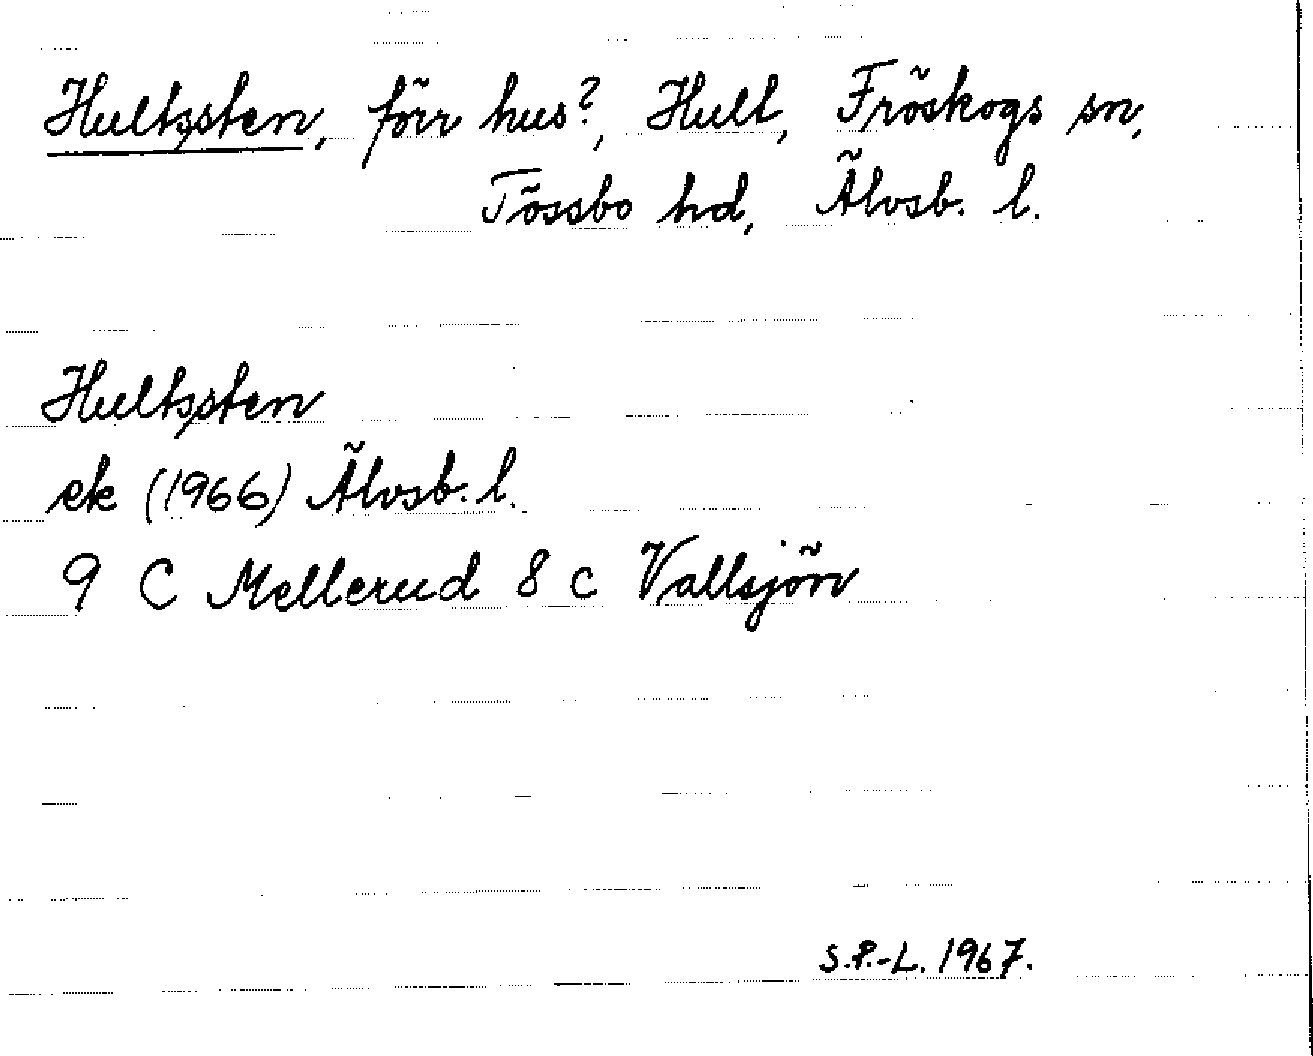 Hultssten, förr hus?, Hult, Fröskogs sn,
Tössbo hd, Älvsb. l.
Hultssten
ek (1966) Älvsb. l.
9 C Mellerud 8 c Vallsjön
S.P.-L. 1967.